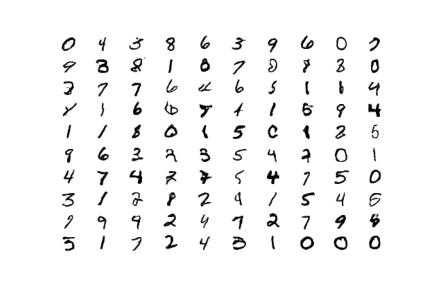 0 4 3 8 6 3 9 6 0 2
9 3 8 1 8 7 0 8 0
3 7 7 6 6 5 1 1 4
1 6 6 7 1 1 5 9 4
1 1 8 0 1 5 0 1 8 5
9 6 3 2 3 5 4 2 0 1
4 7 4 2 7 5 4 7 5 0
3 1 2 8 2 9 1 5 4 5
9 9 9 2 4 7 2 7 9 8
5 1 7 2 4 3 1 0 0 0